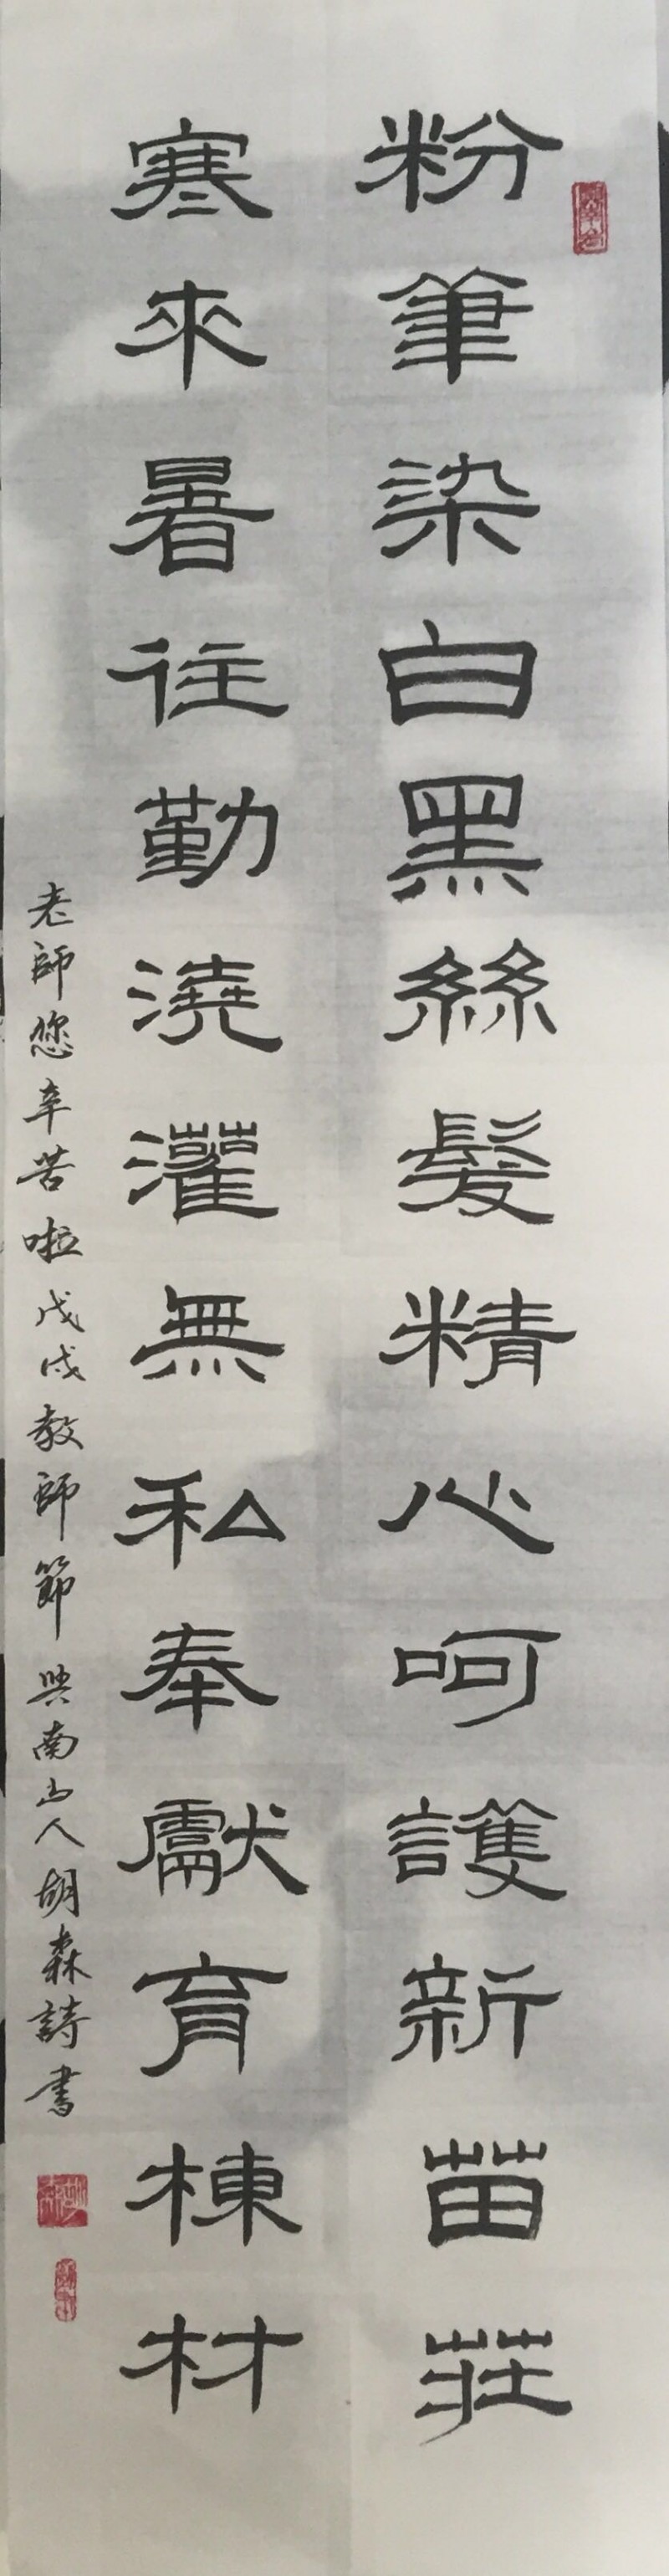 粉筆染白黑絲髮精心呵護新苗莊
寒來暑往勤澆灌無私奉獻育棟材
老師您辛苦啦戊戌教師節與南山人胡森詩書